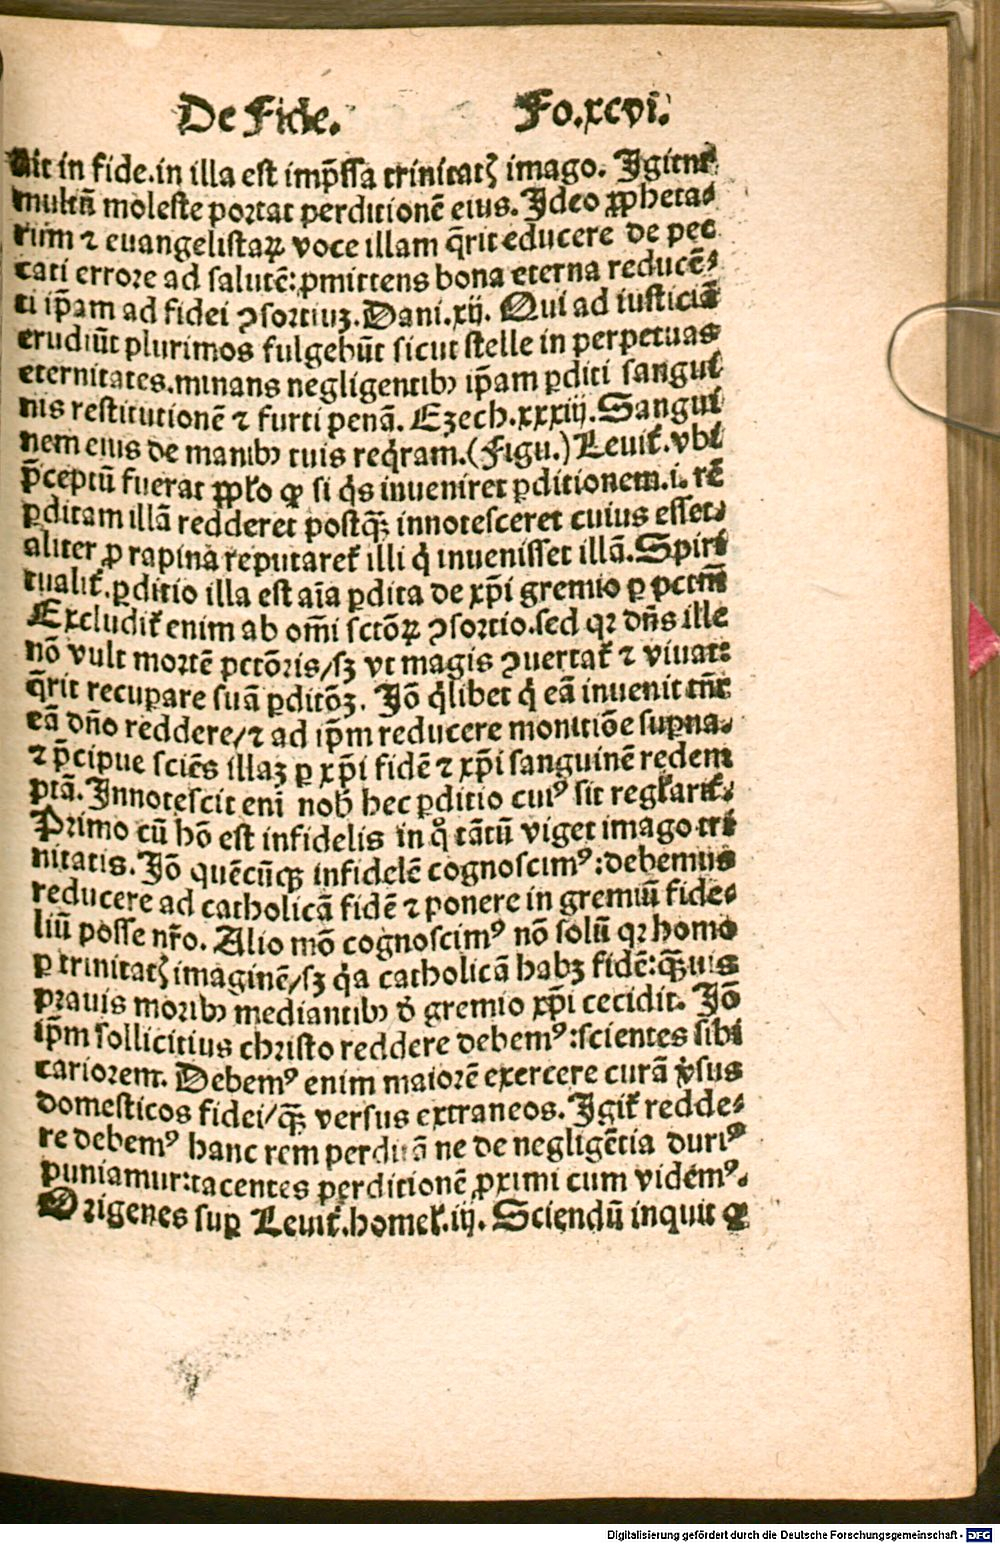 De Fide. Fo.xcvi.
uit in fide.in illa est imp̄ssa trinitatꝭ imago. Igitur
multũ moleste portat perditionẽ eius. Ideo ꝓpheta-
rum ⁊ euangelistaꝝ voce illam q̄rit educere de pec
cati errore ad salutẽ:ꝓmittens bona eterna reducẽ-
ti ip̄am ad fidei ꝯsortiuꝫ. Dani.xij. Qui ad iusticiã
erudiũt plurimos fulgebũt sicut stelle in perpetuas
eternitates.minans negligentibꝰ ip̄am ꝑditi sangui
nis restitutionẽ ⁊ furti penã. Ezech.xxxiij. Sangui
nem eius de manibꝰ tuis reqͥram.(Figu.) Leuit̉.vbi
p̄ceptũ fuerat ꝓpl̉o ꝙ si qͥs inueniret ꝑditionem.i. rẽ
ꝑditam illã redderet postqꝫ̃ innotesceret cuius esset-
aliter ꝓ rapina reputaret̉ illi qͥ inuenisset illã. Spiri
tualit̉.ꝑditio illa est aĩa ꝑdita de xp̄i gremio ꝑ pctm̃
Excludit̉ enim ab om̃i sctõꝝ ꝯsortio.sed qꝛ dñs ille
nõ vult mortẽ pctõris/sꝫ vt magis ꝯuertat̉ ⁊ viuat:
q̄rit recuꝑare suã ꝑditõꝫ. Iõ qͥlibet qͥ eã inuenit tñr
eã dño reddere/⁊ ad ip̄m reducere monitiõe suꝑna-
⁊ p̄cipue sciẽs illaꝫ ꝑ xp̄i fidẽ ⁊ xp̄i sanguinẽ redem
ptã. Innotescit eni nob̃ hec ꝑditio cuiꝰ sit regl̉arit̉-
Primo cũ hõ est infidelis in qͦ tãtũ viget imago tri
nitatis. Iõ quẽcũqꝫ infidelẽ cognoscimꝰ:debemus
reducere ad catholicã fidẽ ⁊ ponere in gremiũ fide-
liũ posse nr̃o. Alio mõ cognoscimꝰ nõ solũ qꝛ homo
ꝑ trinitatꝭ imaginẽ/sꝫ qͥa catholicã habꝫ fidẽ:qꝫ̃uis
prauis moribꝰ mediantibꝰ d̉ gremio xp̄i cecidit. Iõ
ip̄m sollicitius christo reddere debemꝰ:scientes sibi
cariorem. Debemꝰ enim maiorẽ exercere curã v̉sus
domesticos fidei/qꝫ̃ versus extraneos. Igit̉ redde-
re debemꝰ hanc rem perditã ne de negligẽtia duriꝰ
puniamur:tacentes perditionẽ ꝓximi cum videmꝰ.
Origenes suꝑ Leuit̉.homel̉.iij. Sciendũ inquit ꝙ
Digitalisierung gefördert durch die Deutsche Forschungsgemeinschaft - DFG